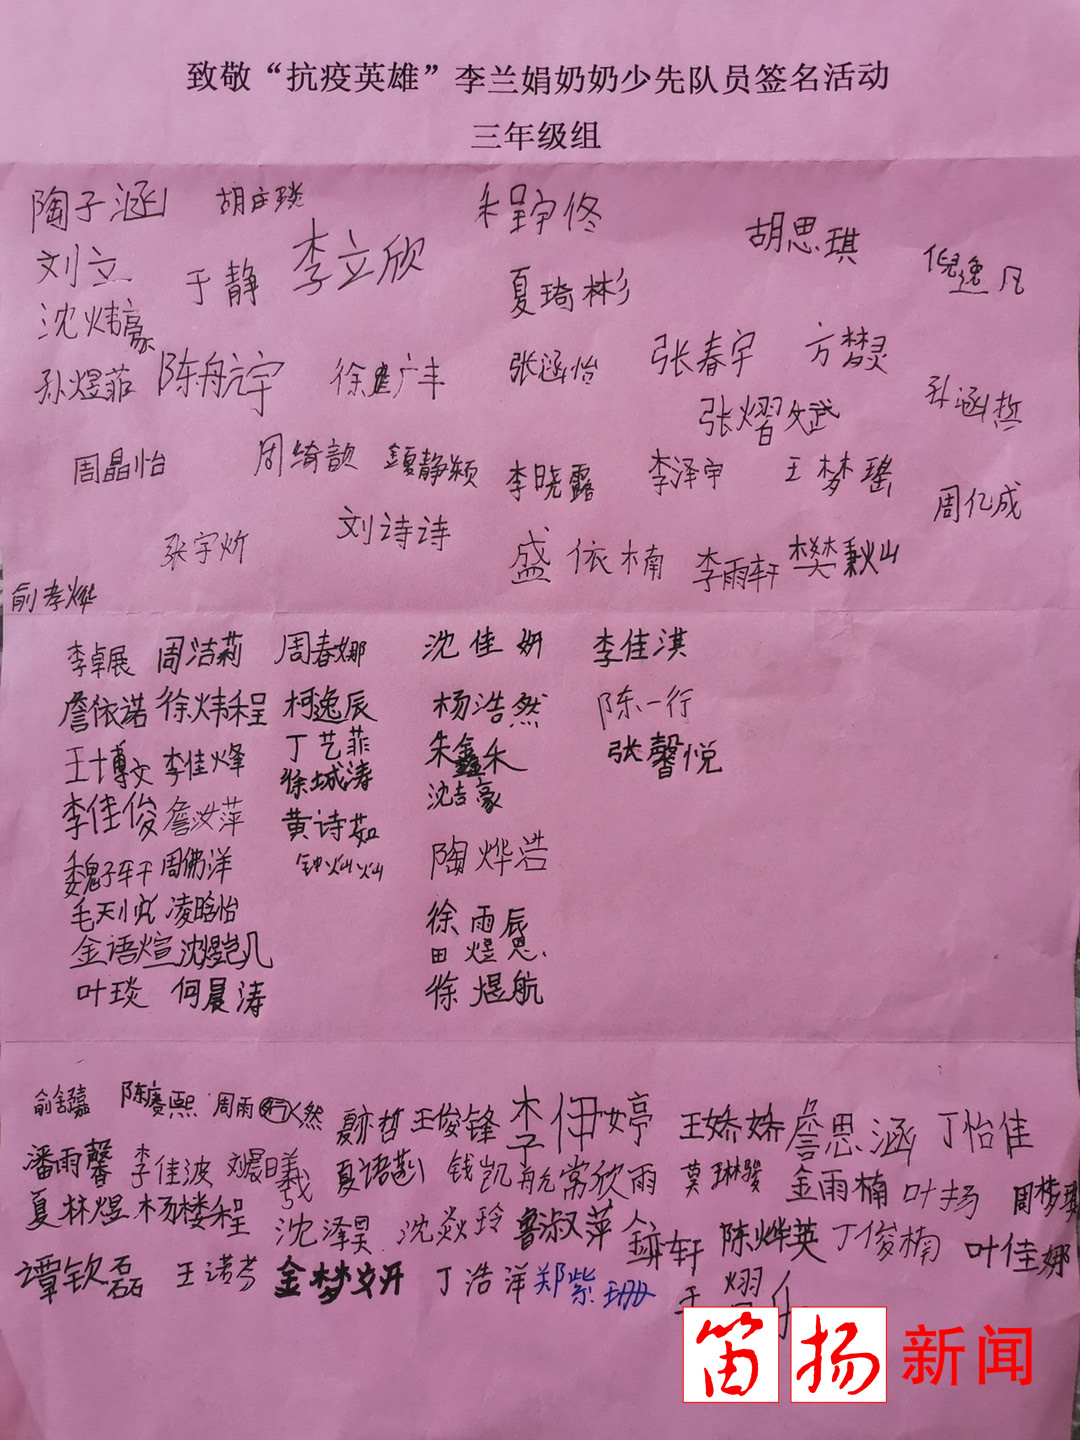 致敬“抗疫英雄”李兰娟奶奶少先队员签名活动
三年级组
陶子涵 胡彦琰 朱程宇佟 胡思琪 倪逸凡
刘立 于静 李立欣 夏琦彬
沈炜豪 张春宇 方梦灵
孙煜菲 陈舟亢宇 徐建广丰 张涵怡 孙涵哲
张熠文武
周晶怡 周绮歆 李晓露 李泽宇 王梦瑶 周亿成
张宇炘 刘诗诗 盛依楠 李雨轩 樊秉灿
俞孝灿
李卓展 周洁莉 周春娜 沈佳妍 李佳淇
詹依诺 徐炜程 柯逸辰 杨浩然 陈一行
王博文 李佳烽 丁艺菲 朱鑫禾 张馨悦
李佳俊 詹汝萍 徐城涛 沈吉豪
魏子轩 周佛洋 黄诗茹 陶烨浩
凌晗怡 钟灿灿 徐雨辰
金语煊 沈煜凯 田煜恩
叶琰 何晨涛 徐煜航
陈赓熙 周雨然 夏亦哲 王俊锋 李佃婷 王娇娇 詹思涵 丁怡佳
潘雨馨 李佳波 刘晨曦 夏语莉 钱凯航 常欣雨 莫琳骏 金雨楠 叶扬
夏林煜 杨楼程 沈泽昊 沈焱玲 鲁淑萍 陈烨英 丁俊楠 叶佳娜
谭钦磊 王诺芳 金梦妍 丁浩洋 郑紫珊
笛扬新闻